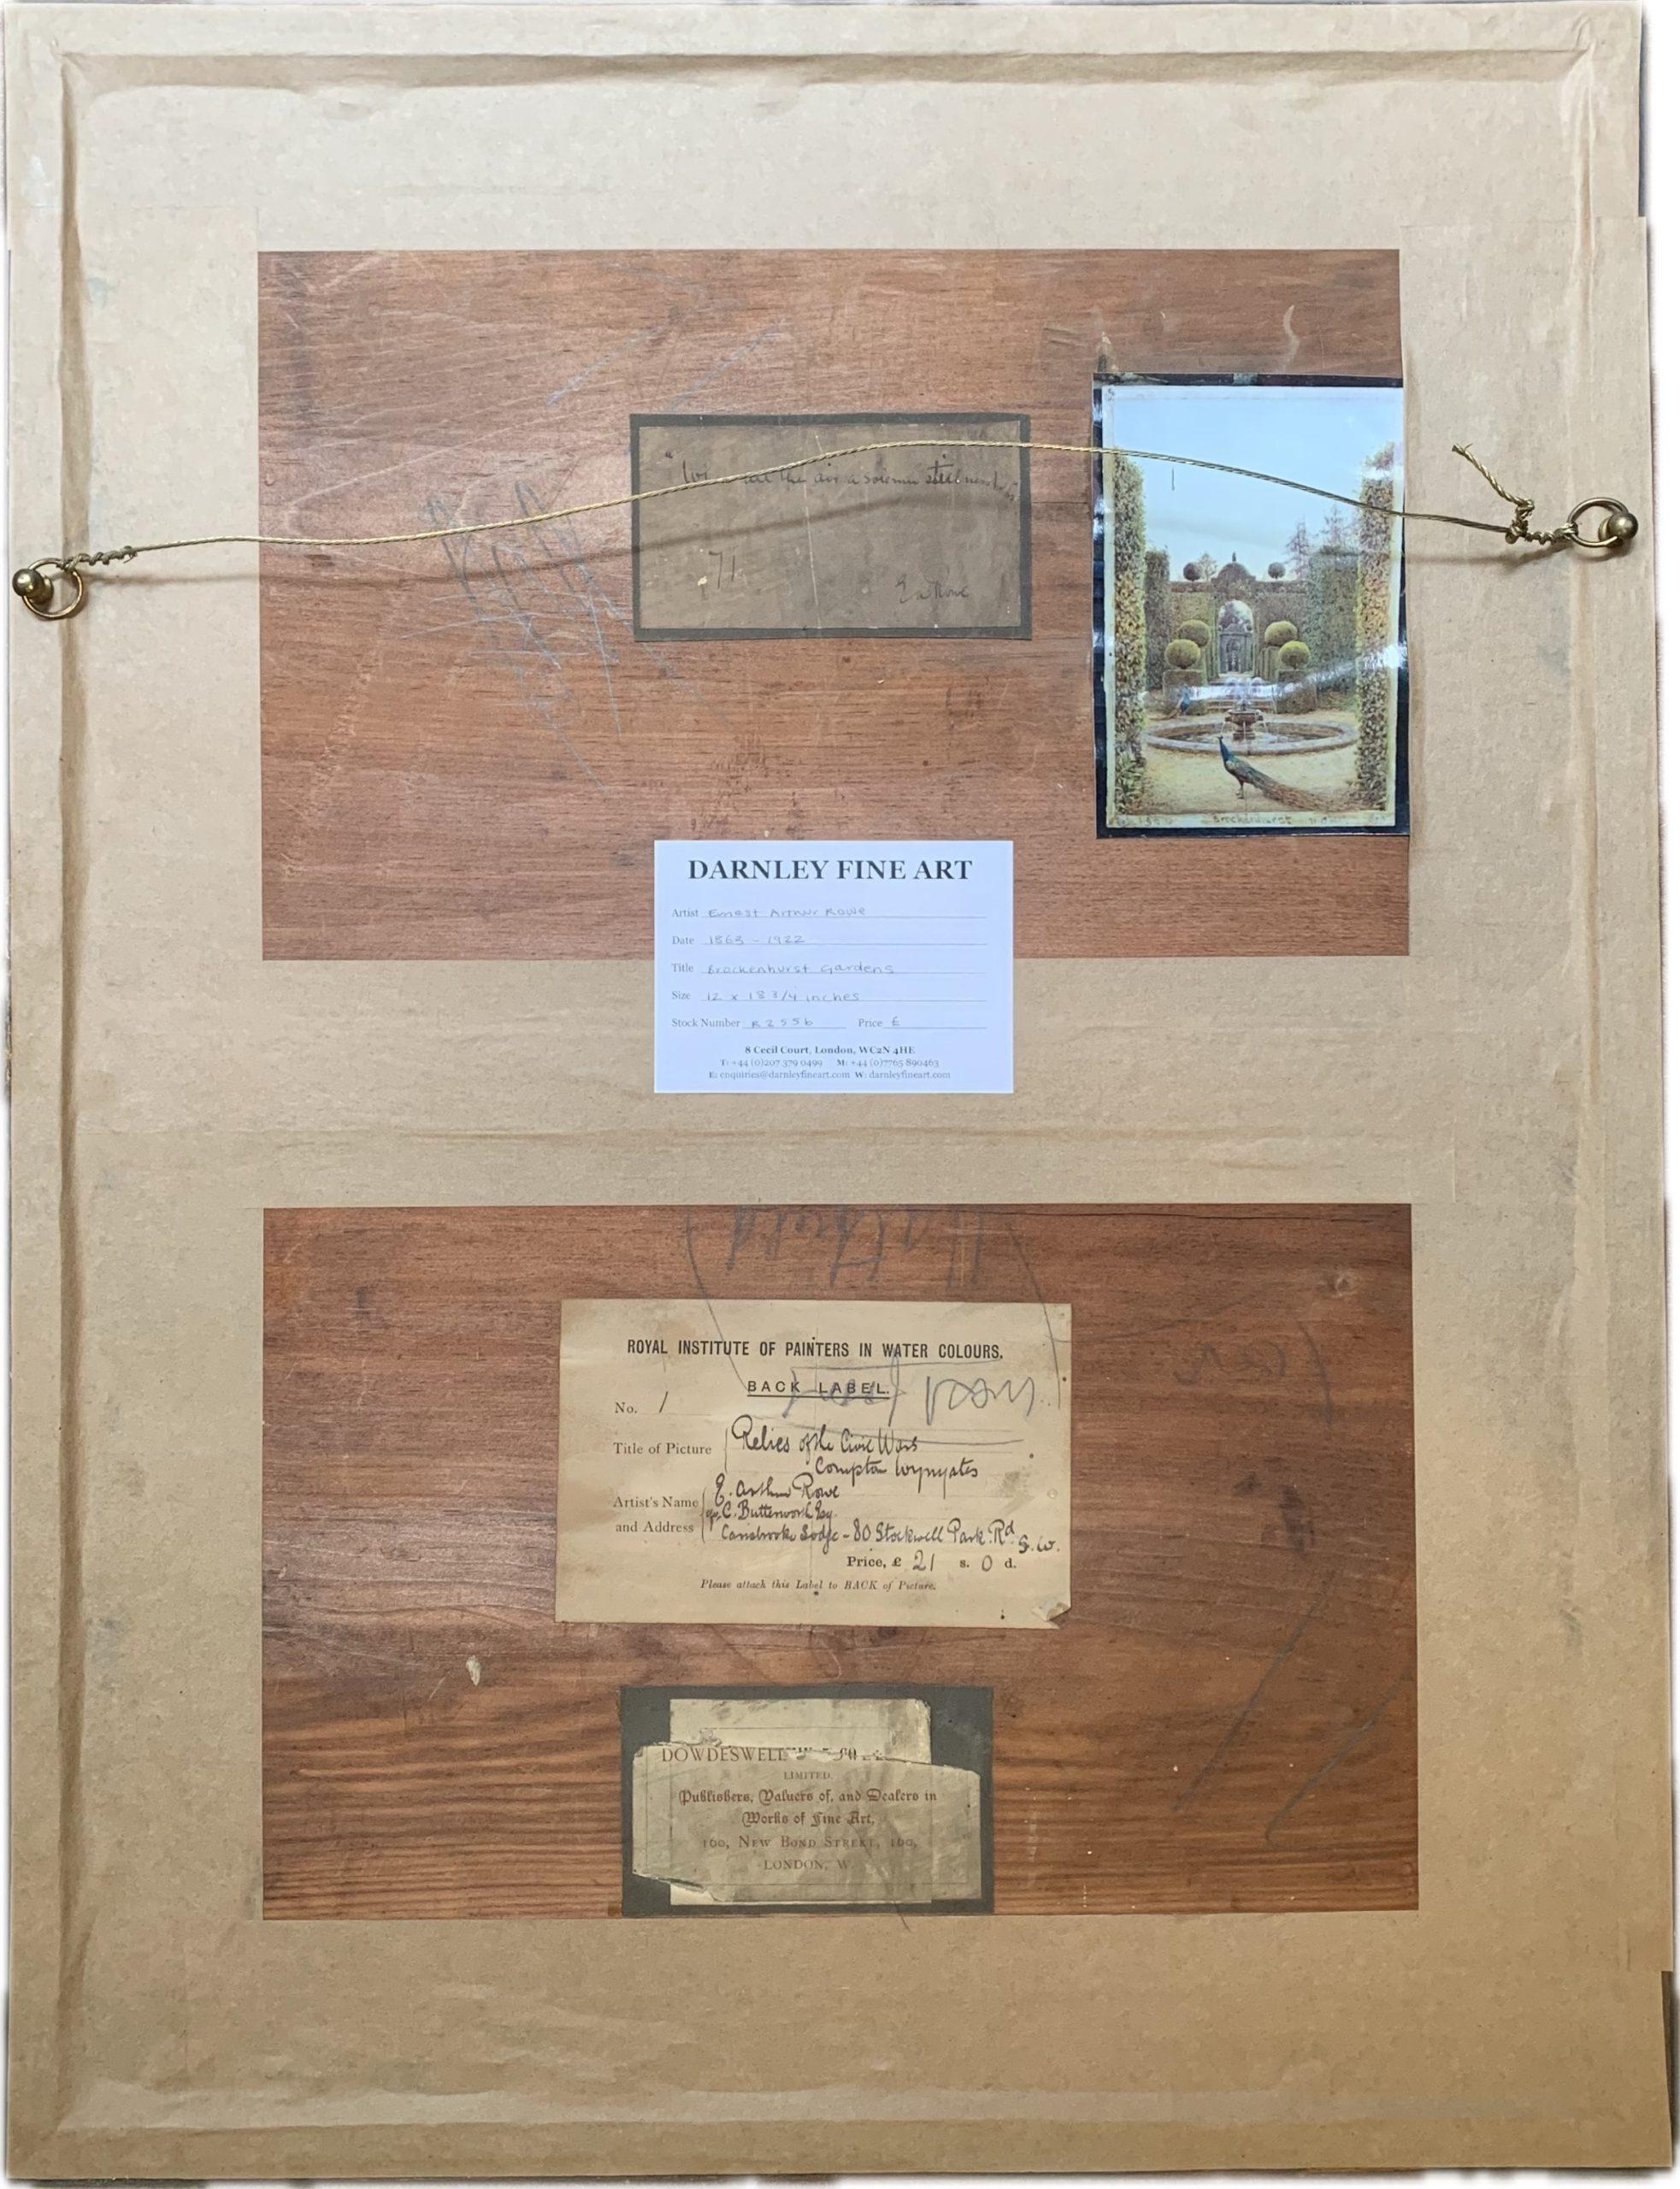 the air a solemn stillness
71
E a Rowe
Brockenhurst
DARNLEY FINE ART
Artist Ernest Arthur Rowe
Date 1863 - 1922
Title Brockenhurst Gardens
Size 12 x 18 3/4 inches
Stock Number R2556 Price £
8 Cecil Court, London, WC2N 4HE
T: +44 (0)207 379 0499 M: +44 (0)7765 890463
E: enquiries@darnleyfineart.com W: darnleyfineart.com
Hatfield
ROYAL INSTITUTE OF PAINTERS IN WATER COLOURS.
BACK LABEL.
No. 1
Title of Picture Relics of the Civil Wars
Compton Wynyates
Artist's Name E. Arthur Rowe
and Address C. Butterworth Esq.
Carisbrooke Lodge - 80 Stockwell Park Rd S.W.
Price, £ 21 s. 0 d.
Please attach this Label to BACK of Picture.
DOWDESWELL
LIMITED
Publishers, Valuers of, and Dealers in
Works of Fine Art,
160, NEW BOND STREET, 160,
LONDON, W.